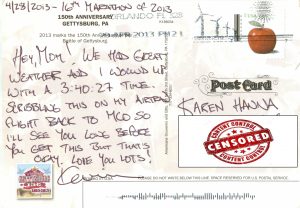 4/28/2013 - 16TH MARATHON OF 2013
150th ANNIVERSARY
GETTYSBURG, PA
2013 marks the 150th Anniversary
Battle of Gettysburg
ORLANDO FL 328
2013 PM 2 1
HEY, MOM! WE HAD GREAT
WEATHER AND I WOUND UP
WITH A 3:40:27 TIME.
SCRIBBLING THIS ON MY
FLIGHT BACK TO MCO SO
I'LL SEE YOU LONG BEFORE
YOU GET THIS BUT THAT'S
OKAY. LOVE YOU LOTS!
Post Card
KAREN HANNA
CONTENT CONTROL
CENSORED
CONTENT CONTROL
PLEASE DO NOT WRITE BELOW THIS LINE. SPACE RESERVED FOR U.S. POSTAL SERVICE.